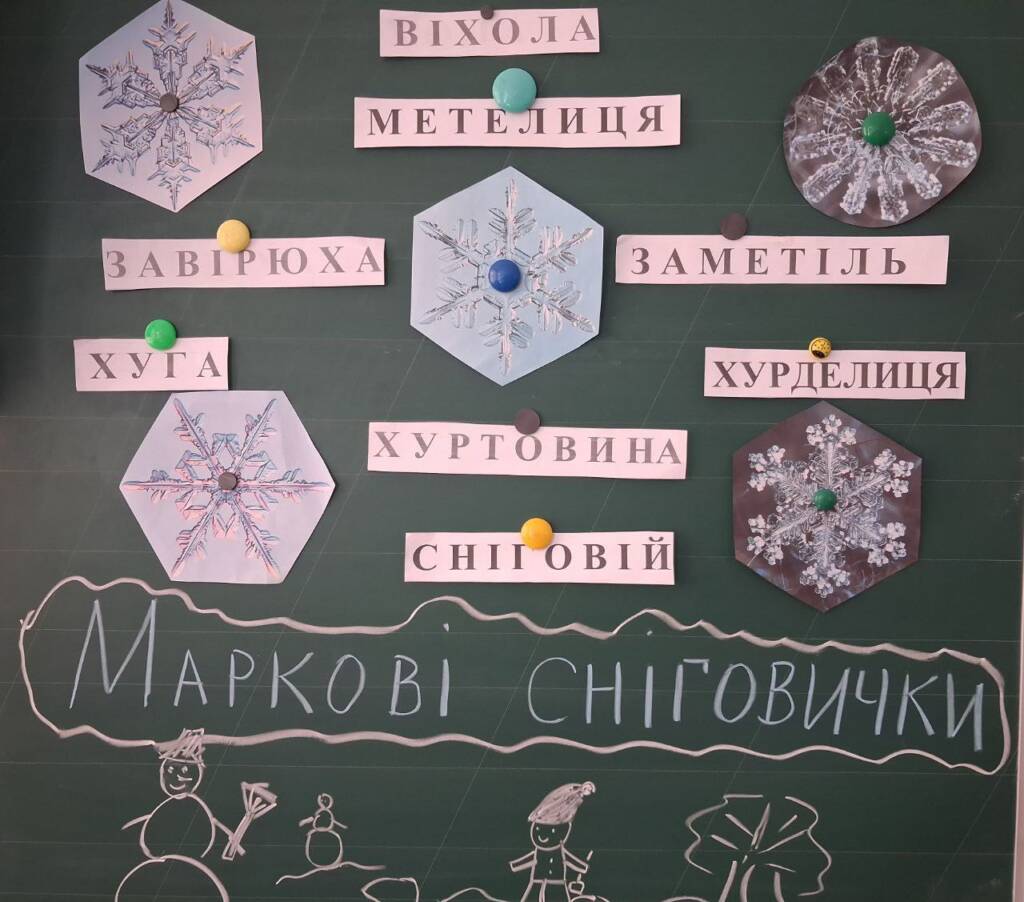 ВІХОЛА
МЕТЕЛИЦЯ
ЗАВІРЮХА
ЗАМЕТІЛЬ
ХУГА
ХУРДЕЛИЦЯ
ХУРТОВИНА
СНІГОВІЙ
МАРКОВІ СНІГОВИЧКИ